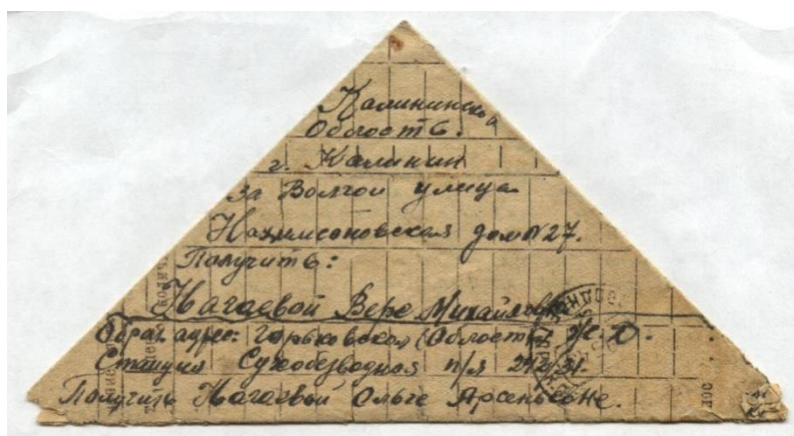 Калининска
Область.
г. Калинин
за Волгой улица
Нахимсоновская дом №27.
Получить:
Нагаевой Вере Михайловн
Обрат. адрес: Горьковская (Область) ж.д.
Станция Сухобезводная п/я
Получить Нагаевой Ольге Арсеньевне.